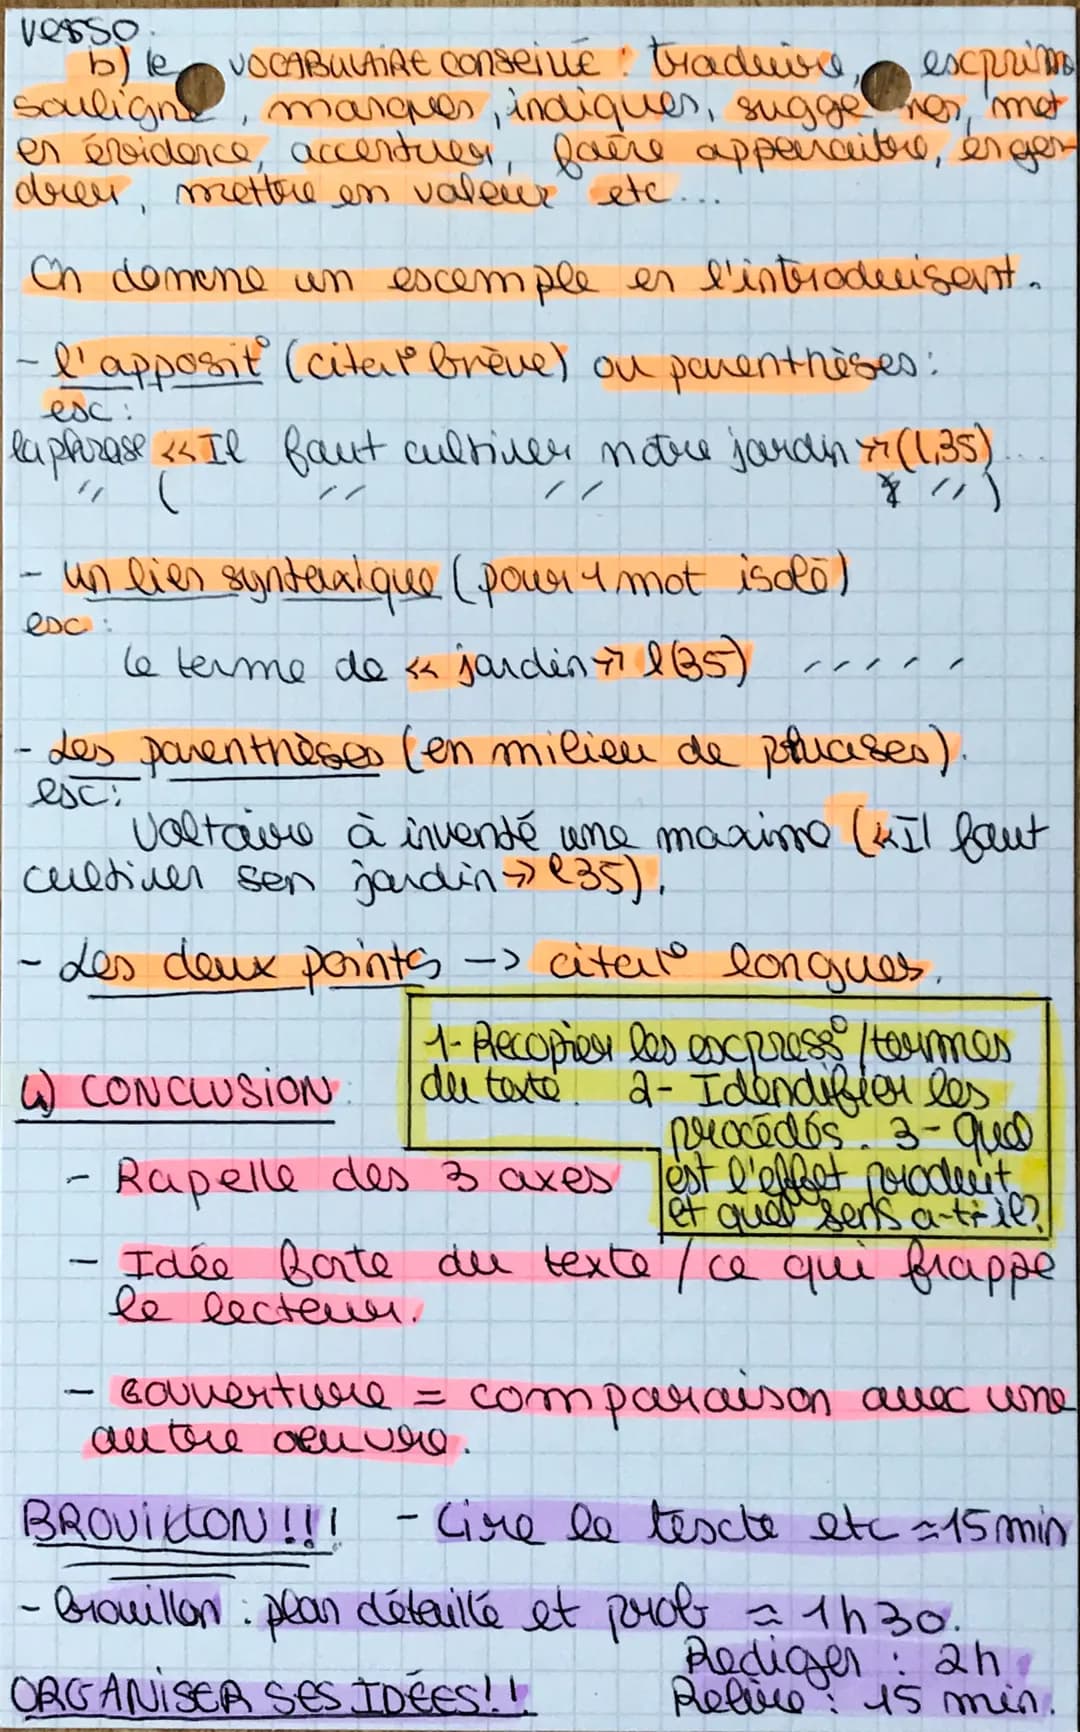 verso.
b) le VOCABULAIRE conseillé : traduire, exprime
souligne, marquer, indiquer, suggérer, met
en évidence, accentuer, faire apparaitre, engen-
drer, mettre en valeur etc...
On donne un exemple en l'introduisant.
- l'apposit° (citat° brève) ou parenthèses :
ex :
la phrase «Il faut cultiver notre jardin» (l,35)...
" ( " " " )
- un lien syntaxique (pour 1 mot isolé)
ex :
le terme de «jardin» l(35) , , , , ,
- des parenthèses (en milieu de phrases).
ex :
Voltaire à inventé une maxime («Il faut
cultiver sen jardin» l35).
- des deux points -> citat° longues.
1- Recopier les express° / termes
du texte. 2- Idendifier les
procédés. 3- Quel
est l'effet produit
et quel sens a-t-il?
4) CONCLUSION :
- Rapelle des 3 axes
- Idée forte du texte / ce qui frappe
le lecteur.
- ouverture = comparaison avec une
autre oeuvre.
BROUILLON !!! - Lire le texte etc ≈15 min
- brouillon : plan détaillé et prob ≈ 1h30.
Rediger : 2h
ORGANISER SES IDÉES!! Relire : 15 min.